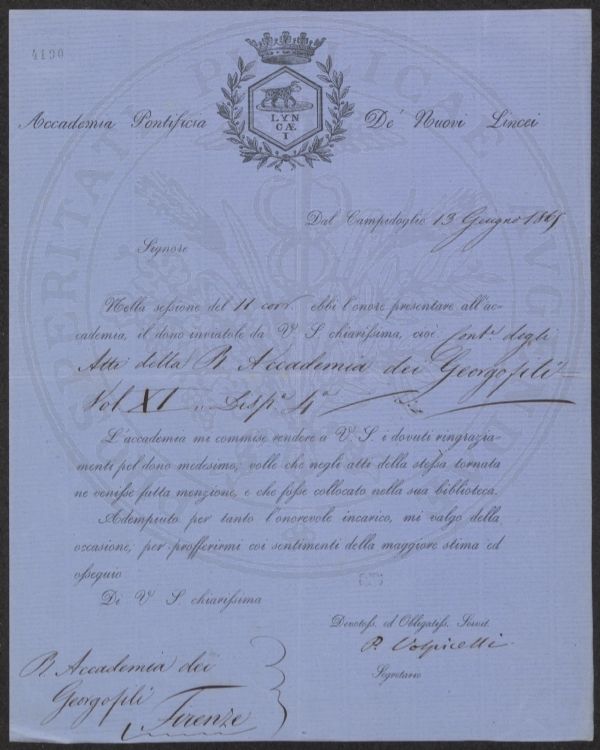 4190
LYN
CÆ
I
Accademia Pontificia De' Nuovi Lincei
Dal Campidoglio 13 Giugno 1865
Signore
Nella sessione del 11 corr. ebbi l'onore presentare all'ac-
cademia, il dono inviatole da V. S. chiarissima, cioè cont.e degli
Atti della R Accademia dei Georgofili
Vol XI Disp.a 4a
L'accademia mi commise rendere a V. S. i dovuti ringrazia-
menti pel dono medesimo; volle che negli atti della stessa tornata
ne venisse fatta menzione, e che fosse collocato nella sua biblioteca.
Adempiuto per tanto l'onorevole incarico, mi valgo della
occasione, per profferirmi coi sentimenti della maggiore stima ed
ossequio
Di V S. chiarissima
Devotiss. ed Obligatiss. Servit.
P. Volpicelli
Segretario
R. Accademia dei
Georgofili
Firenze